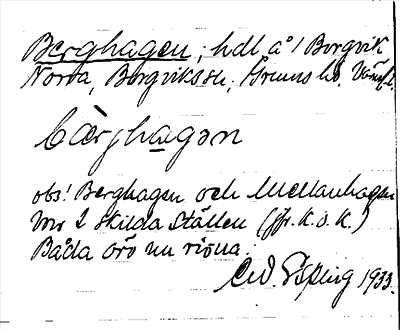 Berghagen, hdl å 1 Borgvik
Norra, Borgviks sn, Grums hd. Värml.
bærjhagən
obs! Berghagen och Mellanhagen
äro 2 skilda ställen (jfr. K.o.K.)
Båda äro nu rivna.
Esping 1933.